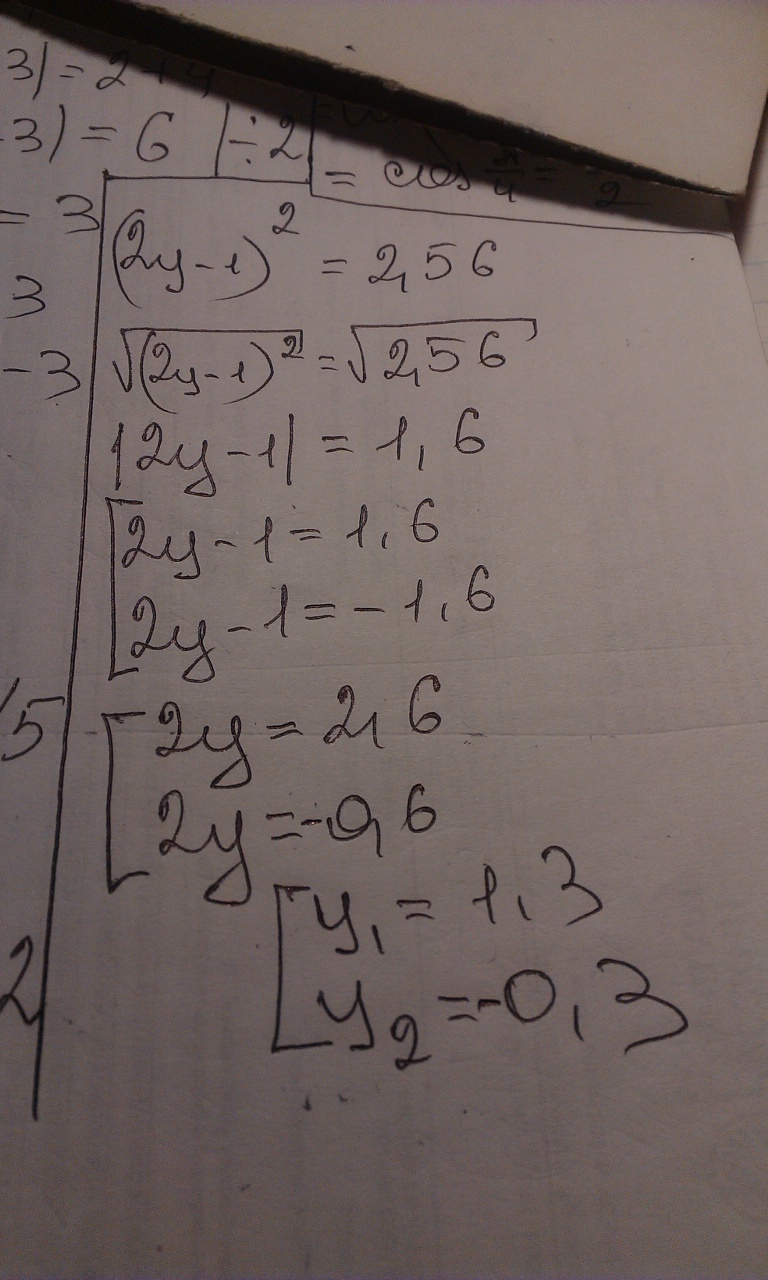 3) = 2+4
3) = 6 | ÷2
= cos π/4 = /2
= 3
3
-3
(2y-1)² = 2,56
√(2y-1)² = √2,56
|2y-1| = 1,6
[2y-1 = 1,6
2y-1 = -1,6
5
[2y = 2,6
2y = -0,6
2
[y₁ = 1,3
y₂ = -0,3